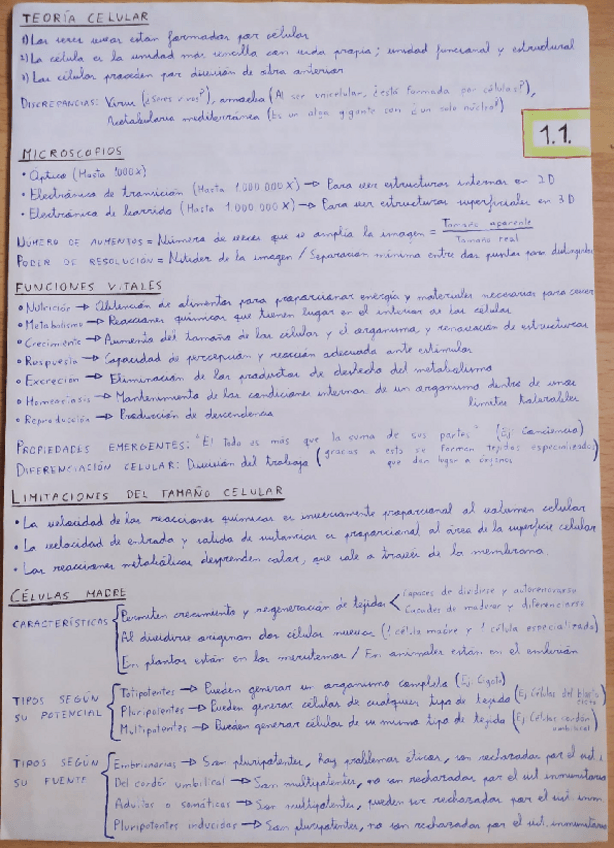 TEORÍA CELULAR
1) Los seres vivos están formados por células
2) La célula es la unidad más sencilla con vida propia; unidad funcional y estructural
3) Las células proceden por división de otra anterior
DISCREPANCIAS: Virus (¿Seres vivos?), amoeba (Al ser unicelular, ¿está formada por células?),
Acetabularia mediterránea (Es un alga gigante con ¿un solo núcleo?)
1.1.
MICROSCOPIOS
• Óptico (Hasta 1000X)
• Electrónico de transición (Hasta 1.000.000X) → Para ver estructuras internas en 2D
• Electrónico de barrido (Hasta 1.000.000X) → Para ver estructuras superficiales en 3D
NÚMERO DE AUMENTOS = Número de veces que se amplía la imagen = Tamaño aparente / Tamaño real
PODER DE RESOLUCIÓN = Nitidez de la imagen / Separación mínima entre dos puntos para distinguirlos
FUNCIONES VITALES
• Nutrición → Obtención de alimentos para proporcionar energía y materiales necesarios para crecer
• Metabolismo → Reacciones químicas que tienen lugar en el interior de las células
• Crecimiento → Aumento del tamaño de las células y el organismo y renovación de estructuras
• Respuesta → Capacidad de percepción y reacción adecuada ante estímulos
• Excreción → Eliminación de los productos de desecho del metabolismo
• Homeostasis → Mantenimiento de las condiciones internas de un organismo dentro de unos
límites tolerables
• Reproducción → Producción de descendencia
PROPIEDADES EMERGENTES: "El todo es más que la suma de sus partes" (Ej: Conciencia)
DIFERENCIACIÓN CELULAR: División del trabajo (gracias a esto se forman tejidos especializados
que dan lugar a órganos)
LIMITACIONES DEL TAMAÑO CELULAR
• La velocidad de las reacciones químicas es inversamente proporcional al volumen celular
• La velocidad de entrada y salida de sustancias es proporcional al área de la superficie celular
• Las reacciones metabólicas desprenden calor, que sale a través de la membrana.
CÉLULAS MADRE
CARACTERÍSTICAS
Permiten crecimiento y regeneración de tejidos
Capaces de dividirse y autorenovarse
Capaces de madurar y diferenciarse
Al dividirse originan dos células nuevas (1 célula madre y 1 célula especializada)
En plantas están en los meristemos / En animales están en el embrión
TIPOS SEGÚN
SU POTENCIAL
Totipotentes → Pueden generar un organismo completo (Ej: Cigoto)
Pluripotentes → Pueden generar células de cualquier tipo de tejido (Ej: Células del blastocisto)
Multipotentes → Pueden generar células de su mismo tipo de tejido (Ej: Células cordón
umbilical)
TIPOS SEGÚN
SU FUENTE
Embrionarias → Son pluripotentes, hay problemas éticos, son rechazadas por el sist. i
Del cordón umbilical → Son multipotentes, no son rechazadas por el sist. inmunitario
Adultas o somáticas → Son multipotentes, pueden ser rechazadas por el sist. inm
Pluripotentes inducidas → Son pluripotentes, no son rechazadas por el sist. inmunitario